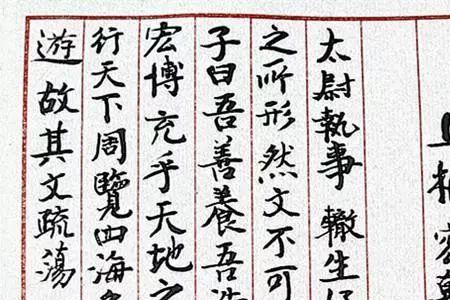 太尉執事 轍生
之所形然文不可
子曰吾善養吾浩
宏博充乎天地之
行天下周覽四海
遊故其文疏蕩